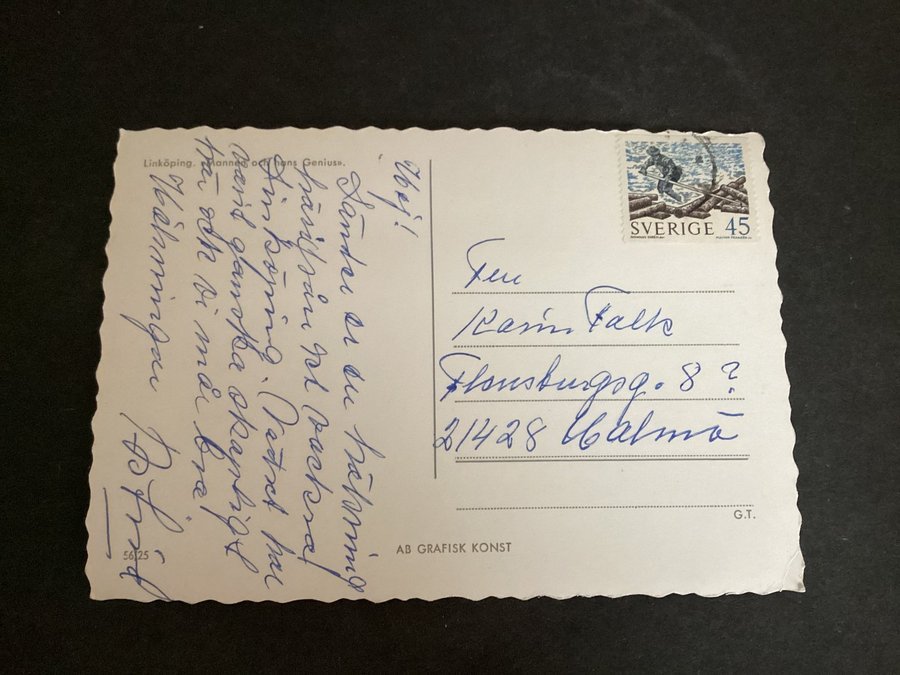 Linköping. »Mannen och hans Genius».
Hej!
Sänder er en hälsning
härifrån det vackra
Linköping. Vädret har
varit ganska skapligt
och vi mår bra
Hälsningar
SVERIGE 45
Karin Falk
Flensburgsg. 8 ?
21428 Malmö
G.T.
AB GRAFISK KONST
56/25